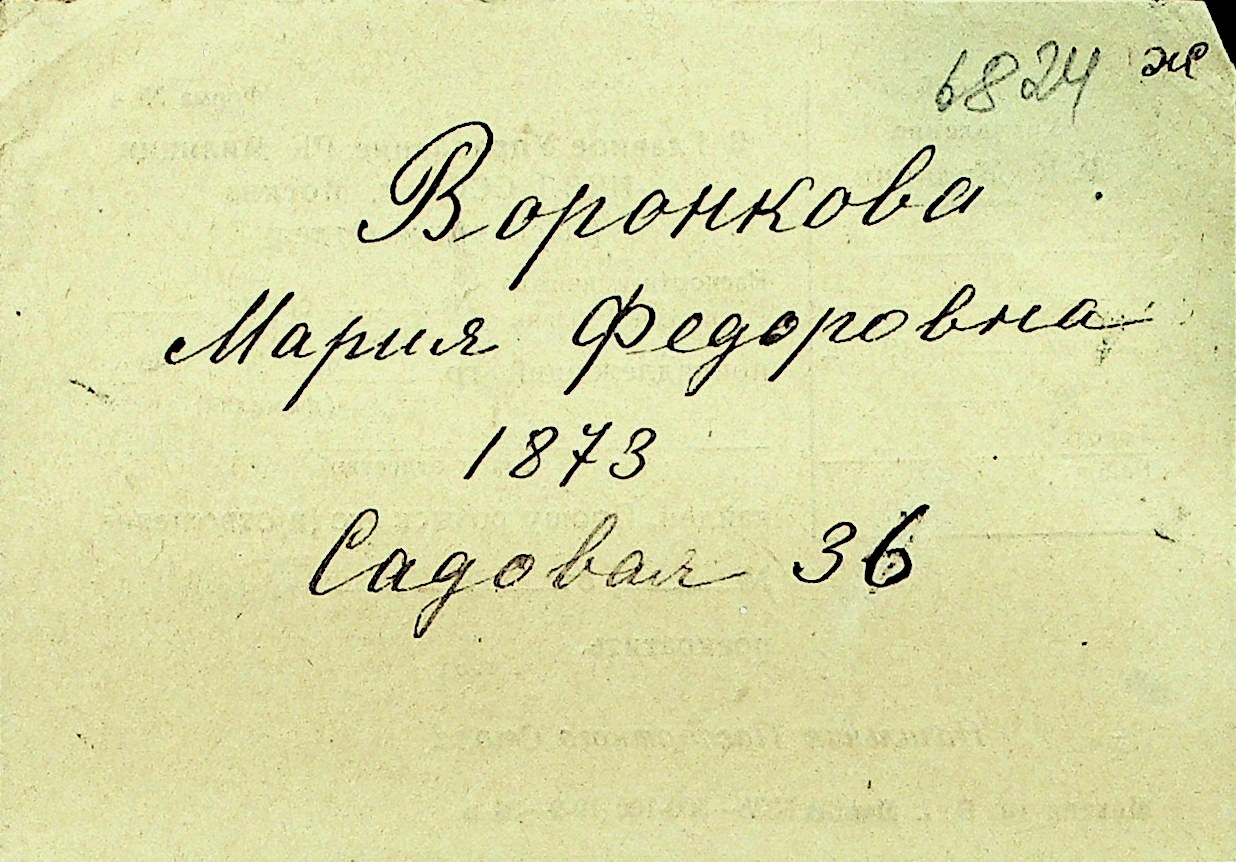 6824 ж
Воронкова
Мария Федоровна
1873
Садовая 36